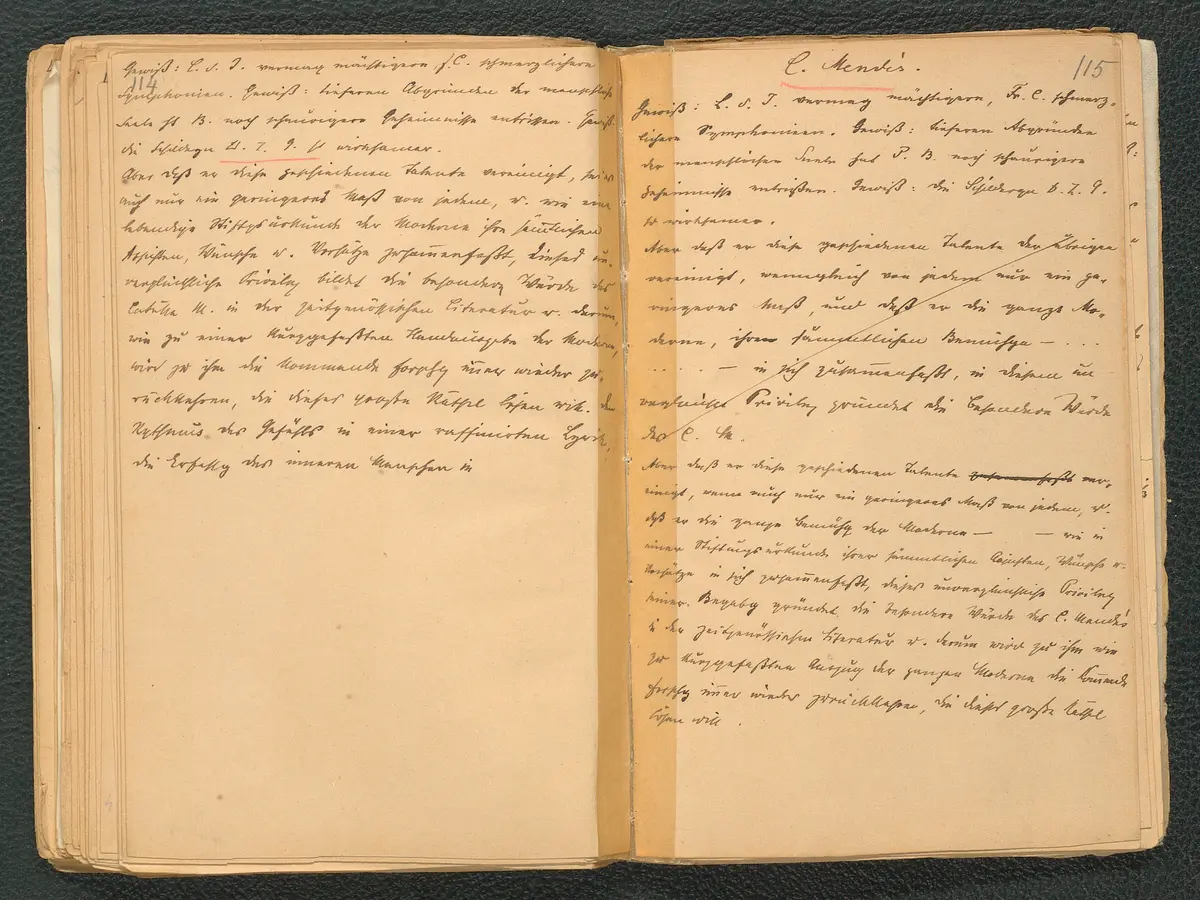 114
Gewiß: L. d. T. vermag mächtigere, F. C. schmerzlichere
Symphonien. Gewiß: tieferen Abgründen der menschlichen
Seele hat B. noch schaurigere Geheimnisse entrissen. Gewiß:
die Schilderg D. Z. G. ist wirksamer.
Aber daß er diese geschiedenen Talente vereinigt, sei es
auch nur ein geringeres Maß von jedem, u. wie eine
lebendige Stiftgsurkunde der Moderne ihre sämmtlichen
Absichten, Wünsche u. Vorsätze zusammenfaßt, dieses un-
vergleichliche Privileg bildet die besondere Würde des
Catulle M. in der zeitgenössischen Literatur u. darum,
wie zu einer kurzgefaßten Handausgabe der Moderne,
wird zu ihm die kommende Forschg immer wieder zu-
rückkehren, die dieses große Rätsel lösen will. Den
Rythmus des Gefühls in einer raffinirten Lyrik,
die Erfassg des inneren Menschen in
115
C. Mendès.
Gewiß: L. d. T. vermag mächtigere, Fr. C. schmerz-
lichere Symphonieen. Gewiß: tieferen Abgründen
der menschlichen Seele hat P. B. noch schaurigere
Geheimnisse entrißen. Gewiß: die Schildergn D. Z. G.
ist wirksamer.
Aber daß er diese geschiedenen Talente der Übrigen
vereinigt, wenngleich von jedem nur ein ge-
ringeres Maß, und daß er die ganze Mo-
derne, ihre sämmtlichen Bemühgn — . . .
. . . . . — in sich zusammenfaßt, in diesem un
vergleichl Privileg gründet die besondere Würde
des C. M.
Aber daß er diese geschiedenen Talente zusammenfaßt ver-
einigt, wenn auch nur ein geringeres Maß von jedem, u.
daß er die ganze Bemühg der Moderne — — wie in
einer Stiftungsurkunde ihrer sämmtlichen Absichten, Wünsche u.
Vorsätze in sich zusammenfaßt, dieses unvergleichliche Privileg
seiner Begabg gründet die besondere Würde des C. Mendès
in der zeitgenössischen Literatur u. darum wird zu ihm wie
zu kurzgefaßten Auszug der ganzen Moderne die kommende
Forschg immer wieder zurückkehren, die dieses große Rätsel
lösen will.